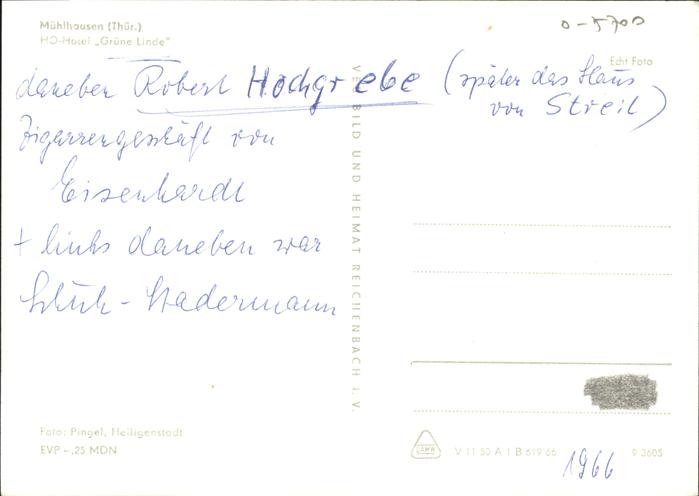 Mühlhausen (Thür.)
HO-Hotel „Grüne Linde"
0-5700
Echt Foto
daneben Robert Hochgrebe (später das Haus
von Streit)
Zigarrengeschäft von
Eisenhardt
+ links daneben war
Schuh-Stadermann
VEB BILD UND HEIMAT REICHENBACH I. V.
Foto: Pingel, Heiligenstadt
EVP -,25 MDN
V 11 50 A 1 B 619 66
9 3605
1966